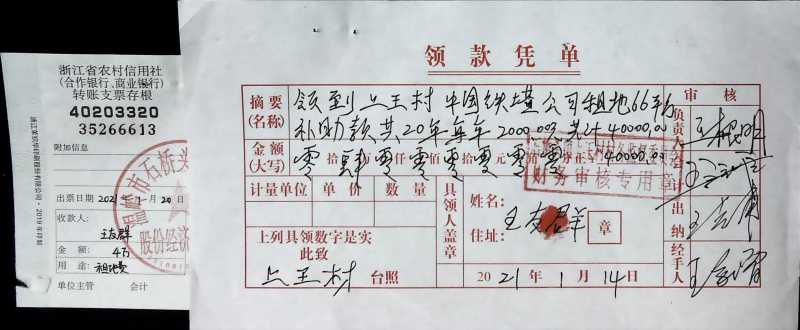 浙江省农村信用社
(合作银行、商业银行)
转账支票存根
40203320
35266613
附加信息
出票日期 2021年1月20日
收款人:
王友群
金额:
4万
用途: 租地费
单位主管 会计
领款凭单
摘要(名称) 领到上王村 中国铁塔公司租地66平方
补助款共20年每年2000.00 共计40000.00
金额(大写) 零 拾 肆 万 零 仟 零 佰 零 拾 零 元 零 角 零 分正 40000.00
财务审核专用章
计量单位 单价 数量
上列具领数字是实
此致
上王村 台照
具领人盖章
姓名: 王友群
住址:
章
2021年1月14日
审核
负责人
会计
出纳
经手人